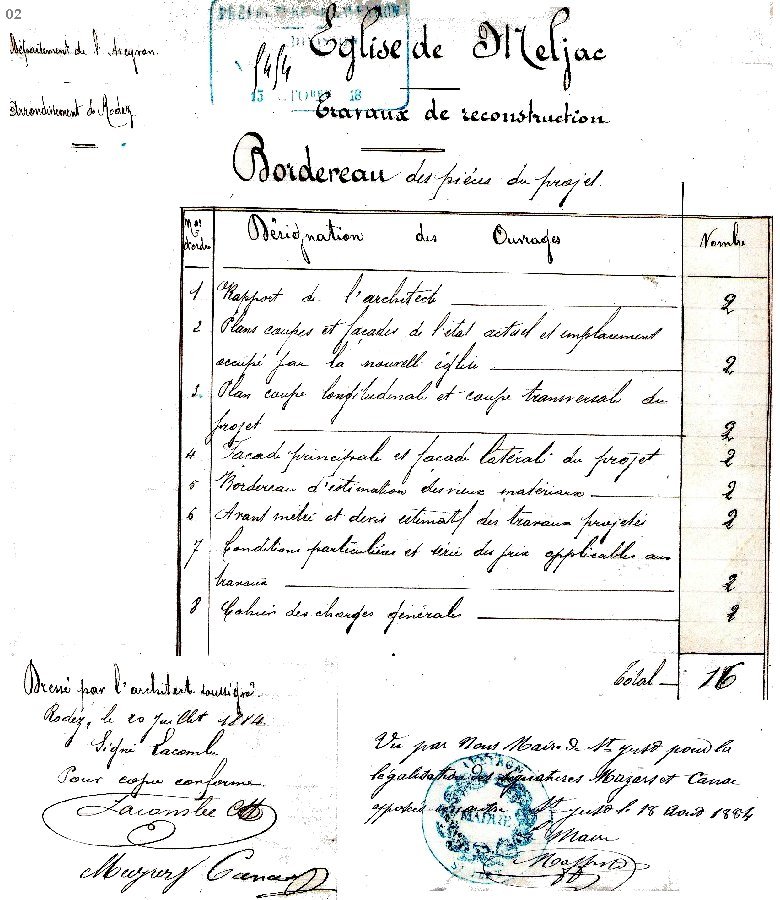 02
Département de l'Aveyron.
Arrondissement de Rodez
5454
13 18
Eglise de Meljac
Travaux de reconstruction
Bordereau des pièces du projet.
Nos d'ordre
Désignation des Ouvrages
Nombre
1 Rapport de l'architecte 2
2 Plans coupes et façades de l'état actuel et emplacement
occupé par la nouvelle église 2
3 Plan coupe longitudinale et coupe transversale du
projet 2
4 Façade principale et façade latérale du projet 2
5 Bordereau d'estimation des vieux matériaux 2
6 Avant métré et devis estimatif des travaux projetés 2
7 Conditions particulières et série des prix applicables aux
travaux 2
8 Cahier des charges générales 2
Total 16
Dressé par l'architecte soussigné.
Rodez, le 20 juillet 1884.
Signé Lacombe
Pour copie conforme
Lacombe
Mazars Canac
Vu par Nous Maire de St Just pour la
légalisation des signatures Mazars et Canac
apposées St Just le 18 Août 1884
Le Maire
MAIRIE